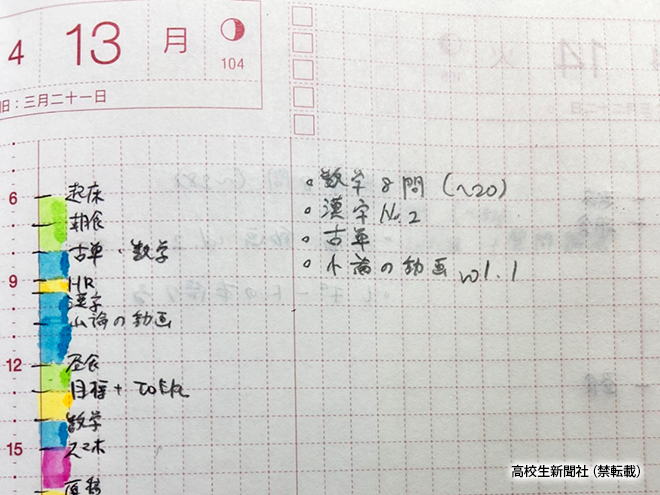 4 13 月
104
旧：三月二十一日
6 起床
朝食
古単・数学
9 HR
漢字
小論の動画
12 昼食
目標+
数学
15 スマホ
・数学8問(~20)
・漢字No.2
・古単
・小論の動画 vol.1
高校生新聞社(禁転載)